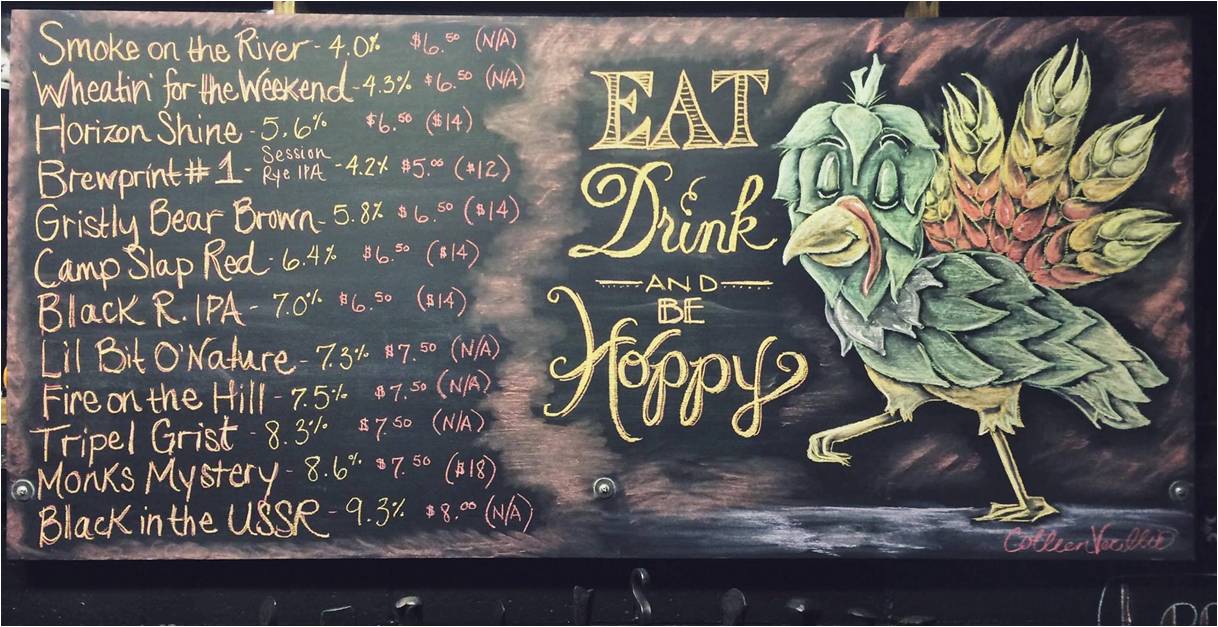 Smoke on the River - 4.0% $6.50 (N/A)
Wheatin' for the Weekend - 4.3% $6.50 (N/A)
Horizon Shine - 5.6% $6.50 ($14)
Brewprint #1 - Session Rye IPA - 4.2% $5.00 ($12)
Gristly Bear Brown - 5.8% $6.50 ($14)
Camp Slap Red - 6.4% $6.50 ($14)
Black R. IPA - 7.0% $6.50 ($14)
Lil Bit O'Nature - 7.3% $7.50 (N/A)
Fire on the Hill - 7.5% $7.50 (N/A)
Tripel Grist - 8.3% $7.50 (N/A)
Monks Mystery - 8.6% $7.50 ($18)
Black in the USSR - 9.3% $8.00 (N/A)
EAT
Drink
AND
BE
Hoppy
Colleen